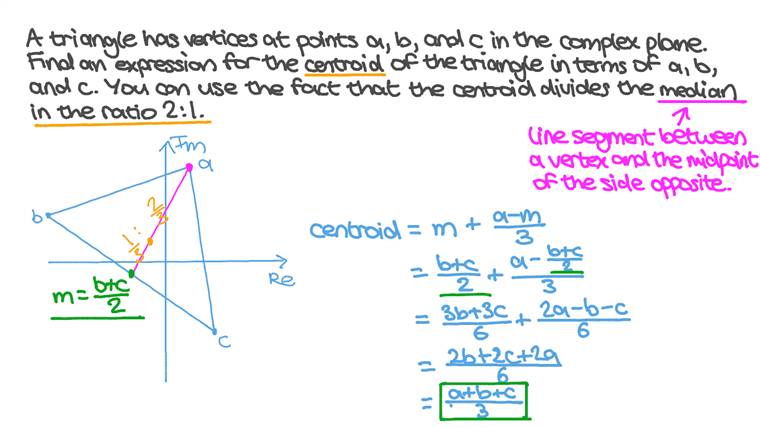 A triangle has vertices at points a, b, and c in the complex plane.
Find an expression for the centroid of the triangle in terms of a, b,
and c. You can use the fact that the centroid divides the median
in the ratio 2:1.
line segment between
a vertex and the midpoint
of the side opposite.
Im
a
b
2/3
1/3 :
Re
m = (b+c)/2
c
centroid = m + (a-m)/3
= (b+c)/2 + (a - (b+c)/2)/3
= (3b+3c)/6 + (2a-b-c)/6
= (2b+2c+2a)/6
= (a+b+c)/3